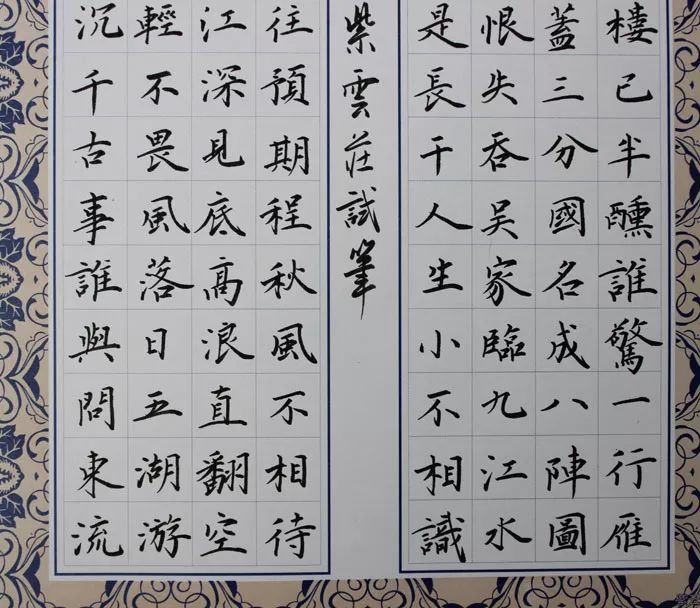 樓已半醺誰驚一行雁
蓋三分國名成八陣圖
恨失吞吳家臨九江水
是長干人生小不相識
紫雲莊試筆
往預期程秋風不相待
江深見底高浪直翻空
輕不畏風落日五湖游
沉千古事誰與問東流